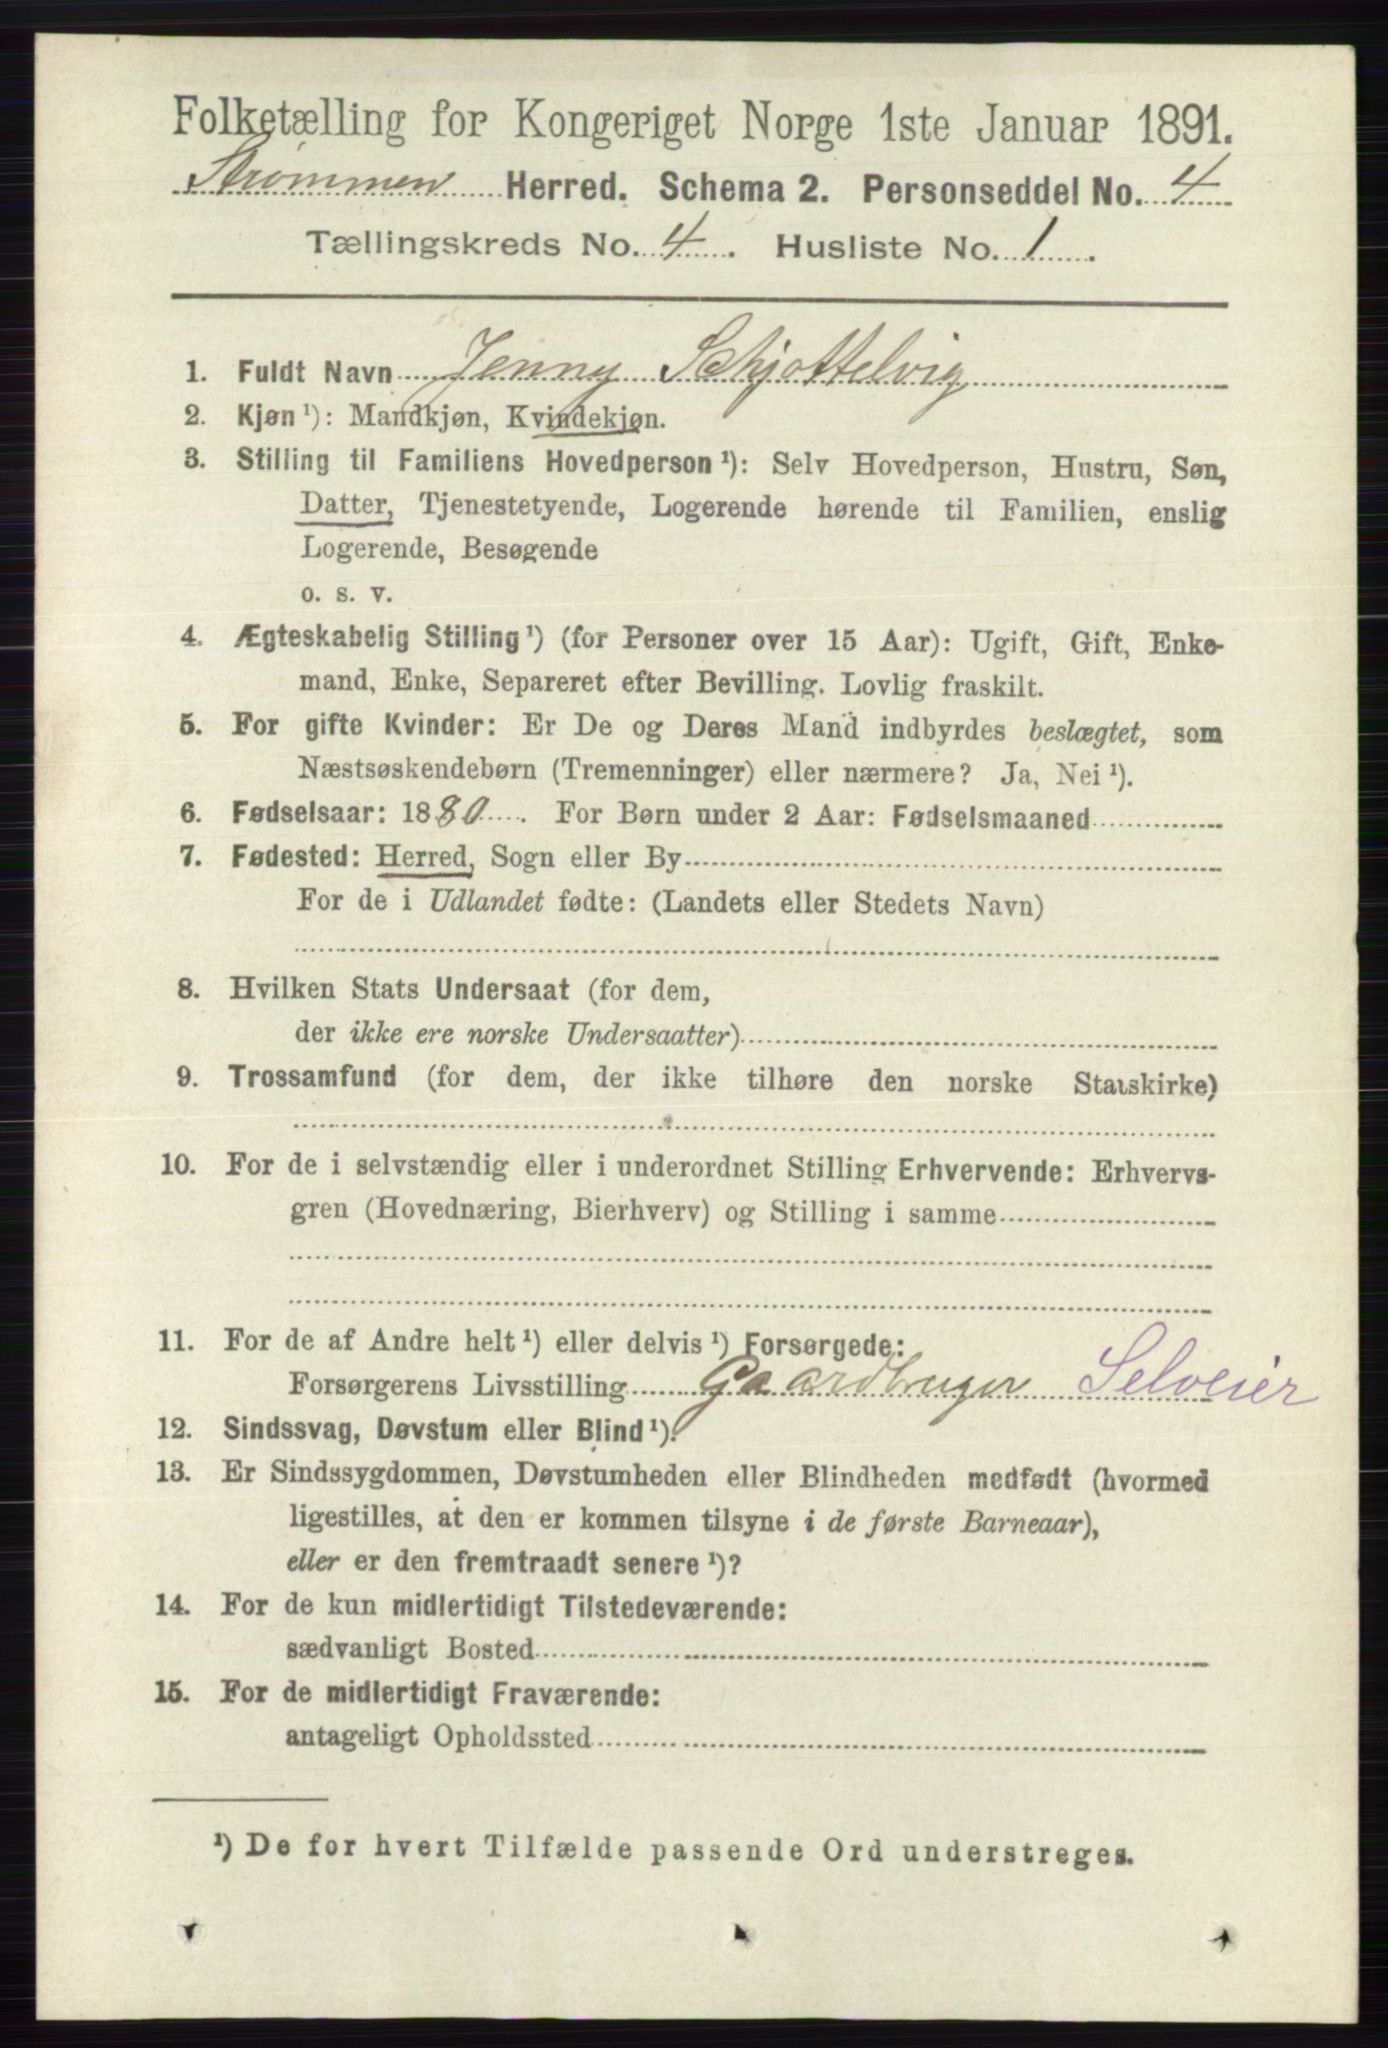 Folketælling for Kongeriget Norge 1ste Januar 1891.
Strømmen Herred. Schema 2. Personseddel No. 4
Tællingskreds No. 4. Husliste No. 1.
1. Fuldt Navn Jenny Schjottelvig
2. Kjøn ¹): Mandkjøn, Kvindekjøn.
3. Stilling til Familiens Hovedperson ¹): Selv Hovedperson, Hustru, Søn,
Datter, Tjenestetyende, Logerende hørende til Familien, enslig
Logerende, Besøgende
o. s. v.
4. Ægteskabelig Stilling ¹) (for Personer over 15 Aar): Ugift, Gift, Enke-
mand, Enke, Separeret efter Bevilling. Lovlig fraskilt.
5. For gifte Kvinder: Er De og Deres Mand indbyrdes beslægtet, som
Næstsøskendebørn (Tremenninger) eller nærmere? Ja, Nei ¹).
6. Fødselsaar: 1880. For Børn under 2 Aar: Fødselsmaaned
7. Fødested: Herred, Sogn eller By
For de i Udlandet fødte: (Landets eller Stedets Navn)
8. Hvilken Stats Undersaat (for dem,
der ikke ere norske Undersaatter)
9. Trossamfund (for dem, der ikke tilhøre den norske Statskirke)
10. For de i selvstændig eller i underordnet Stilling Erhvervende: Erhvervs-
gren (Hovednæring, Bierhverv) og Stilling i samme
11. For de af Andre helt ¹) eller delvis ¹) Forsørgede:
Forsørgerens Livsstilling Gaardbruger Selveier
12. Sindssvag, Døvstum eller Blind ¹).
13. Er Sindssygdommen, Døvstumheden eller Blindheden medfødt (hvormed
ligestilles, at den er kommen tilsyne i de første Barneaar),
eller er den fremtraadt senere ¹)?
14. For de kun midlertidigt Tilstedeværende:
sædvanligt Bosted
15. For de midlertidigt Fraværende:
antageligt Opholdssted
¹) De for hvert Tilfælde passende Ord understreges.